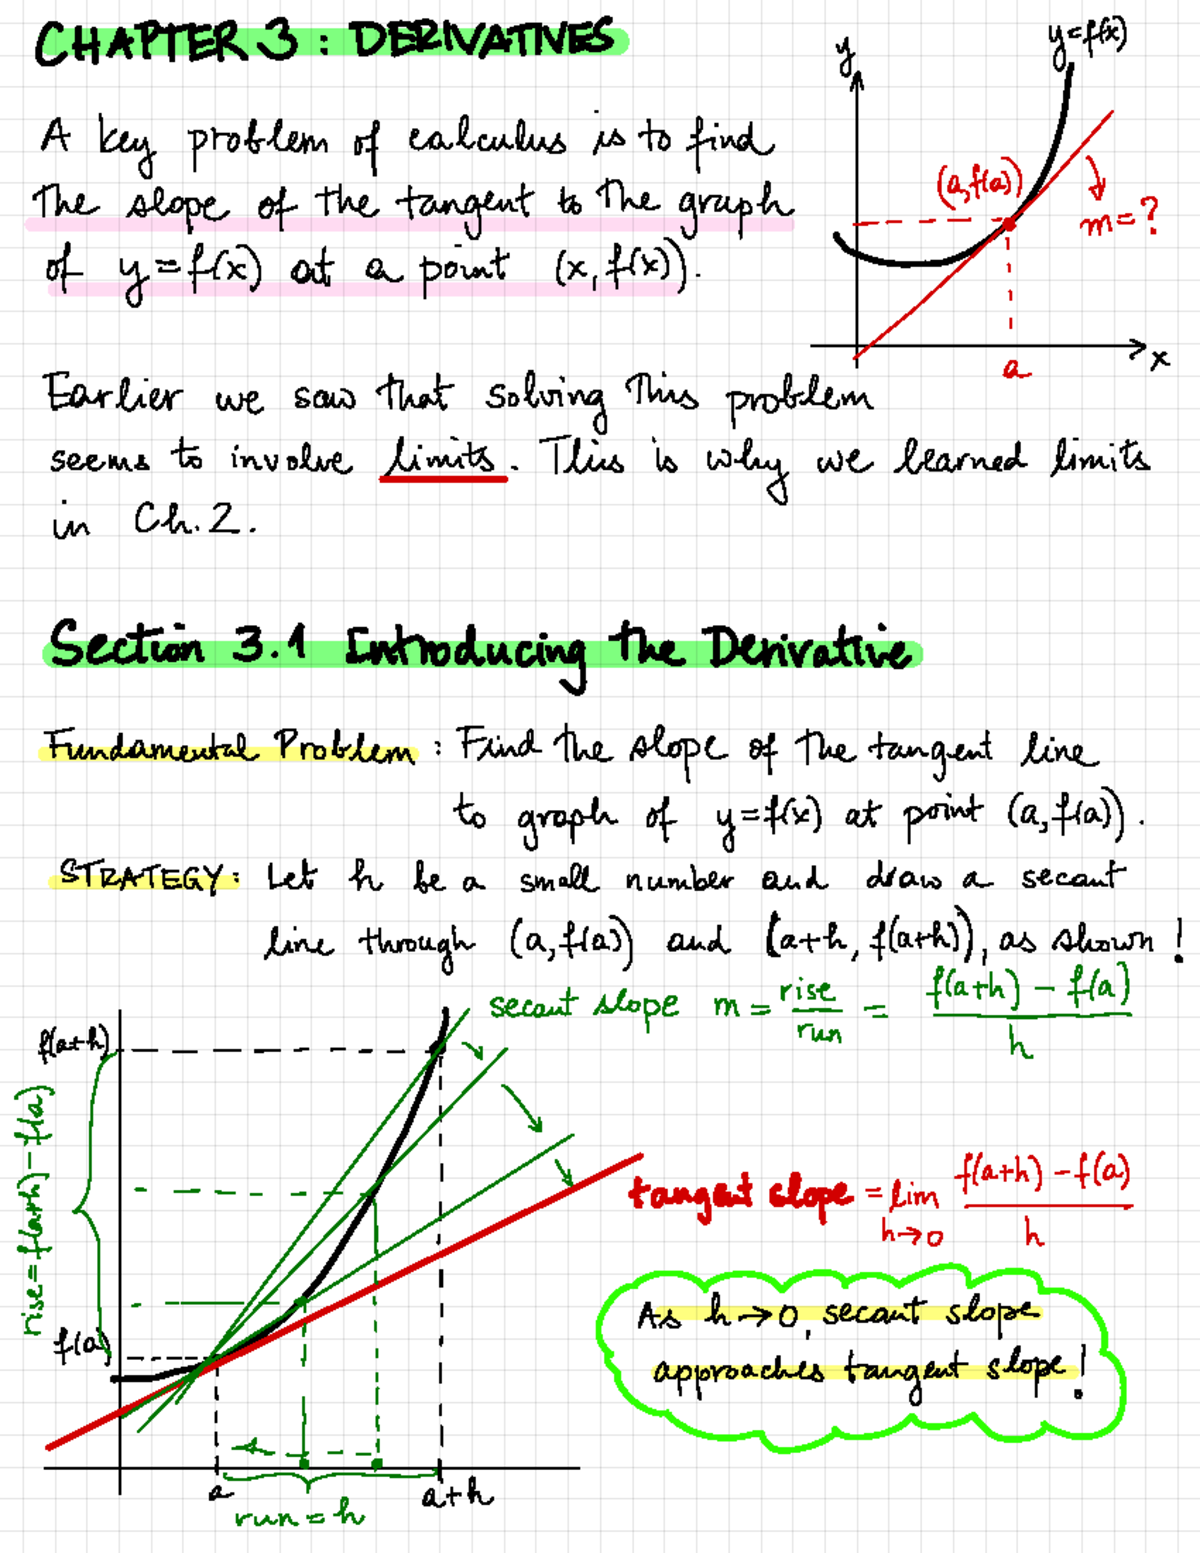 CHAPTER 3 : DERIVATIVES
A key problem of calculus is to find
the slope of the tangent to the graph
of y=f(x) at a point (x, f(x)).
y
y=f(x)
(a,f(a))
m=?
a
x
Earlier we saw that solving this problem
seems to involve limits. This is why we learned limits
in Ch.2.
Section 3.1 Introducing the Derivative
Fundamental Problem : Find the slope of the tangent line
to graph of y=f(x) at point (a, f(a)).
STRATEGY: Let h be a small number and draw a secant
line through (a, f(a)) and (a+h, f(a+h)), as shown!
secant slope m = rise/run = (f(a+h) - f(a))/h
f(a+h)
rise = f(a+h) - f(a)
f(a)
a
a+h
run = h
tangent slope = lim h→0 (f(a+h) - f(a))/h
As h→0, secant slope
approaches tangent slope!